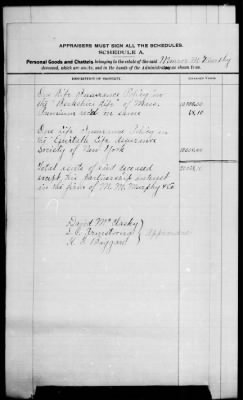 APPRAISERS MUST SIGN ALL THE SCHEDULES.
SCHEDULE A.
Personal Goods and Chattels belonging to the estate of the said M. Murphy
deceased, which are assets, and in the hands of the Administrator as shown from.
DESCRIPTION OF PROPERTY.
One Life Insurance Policy in
the "Berkshire Life" of Mass.
in same
One Life Insurance Policy in
the Equitable Life Assurance
Society of New York
Total assets of said deceased
except his Partnership interest
in the firm of M. M. Murphy & Co
David McClasky
Armstrong
Appraisers
Boggard